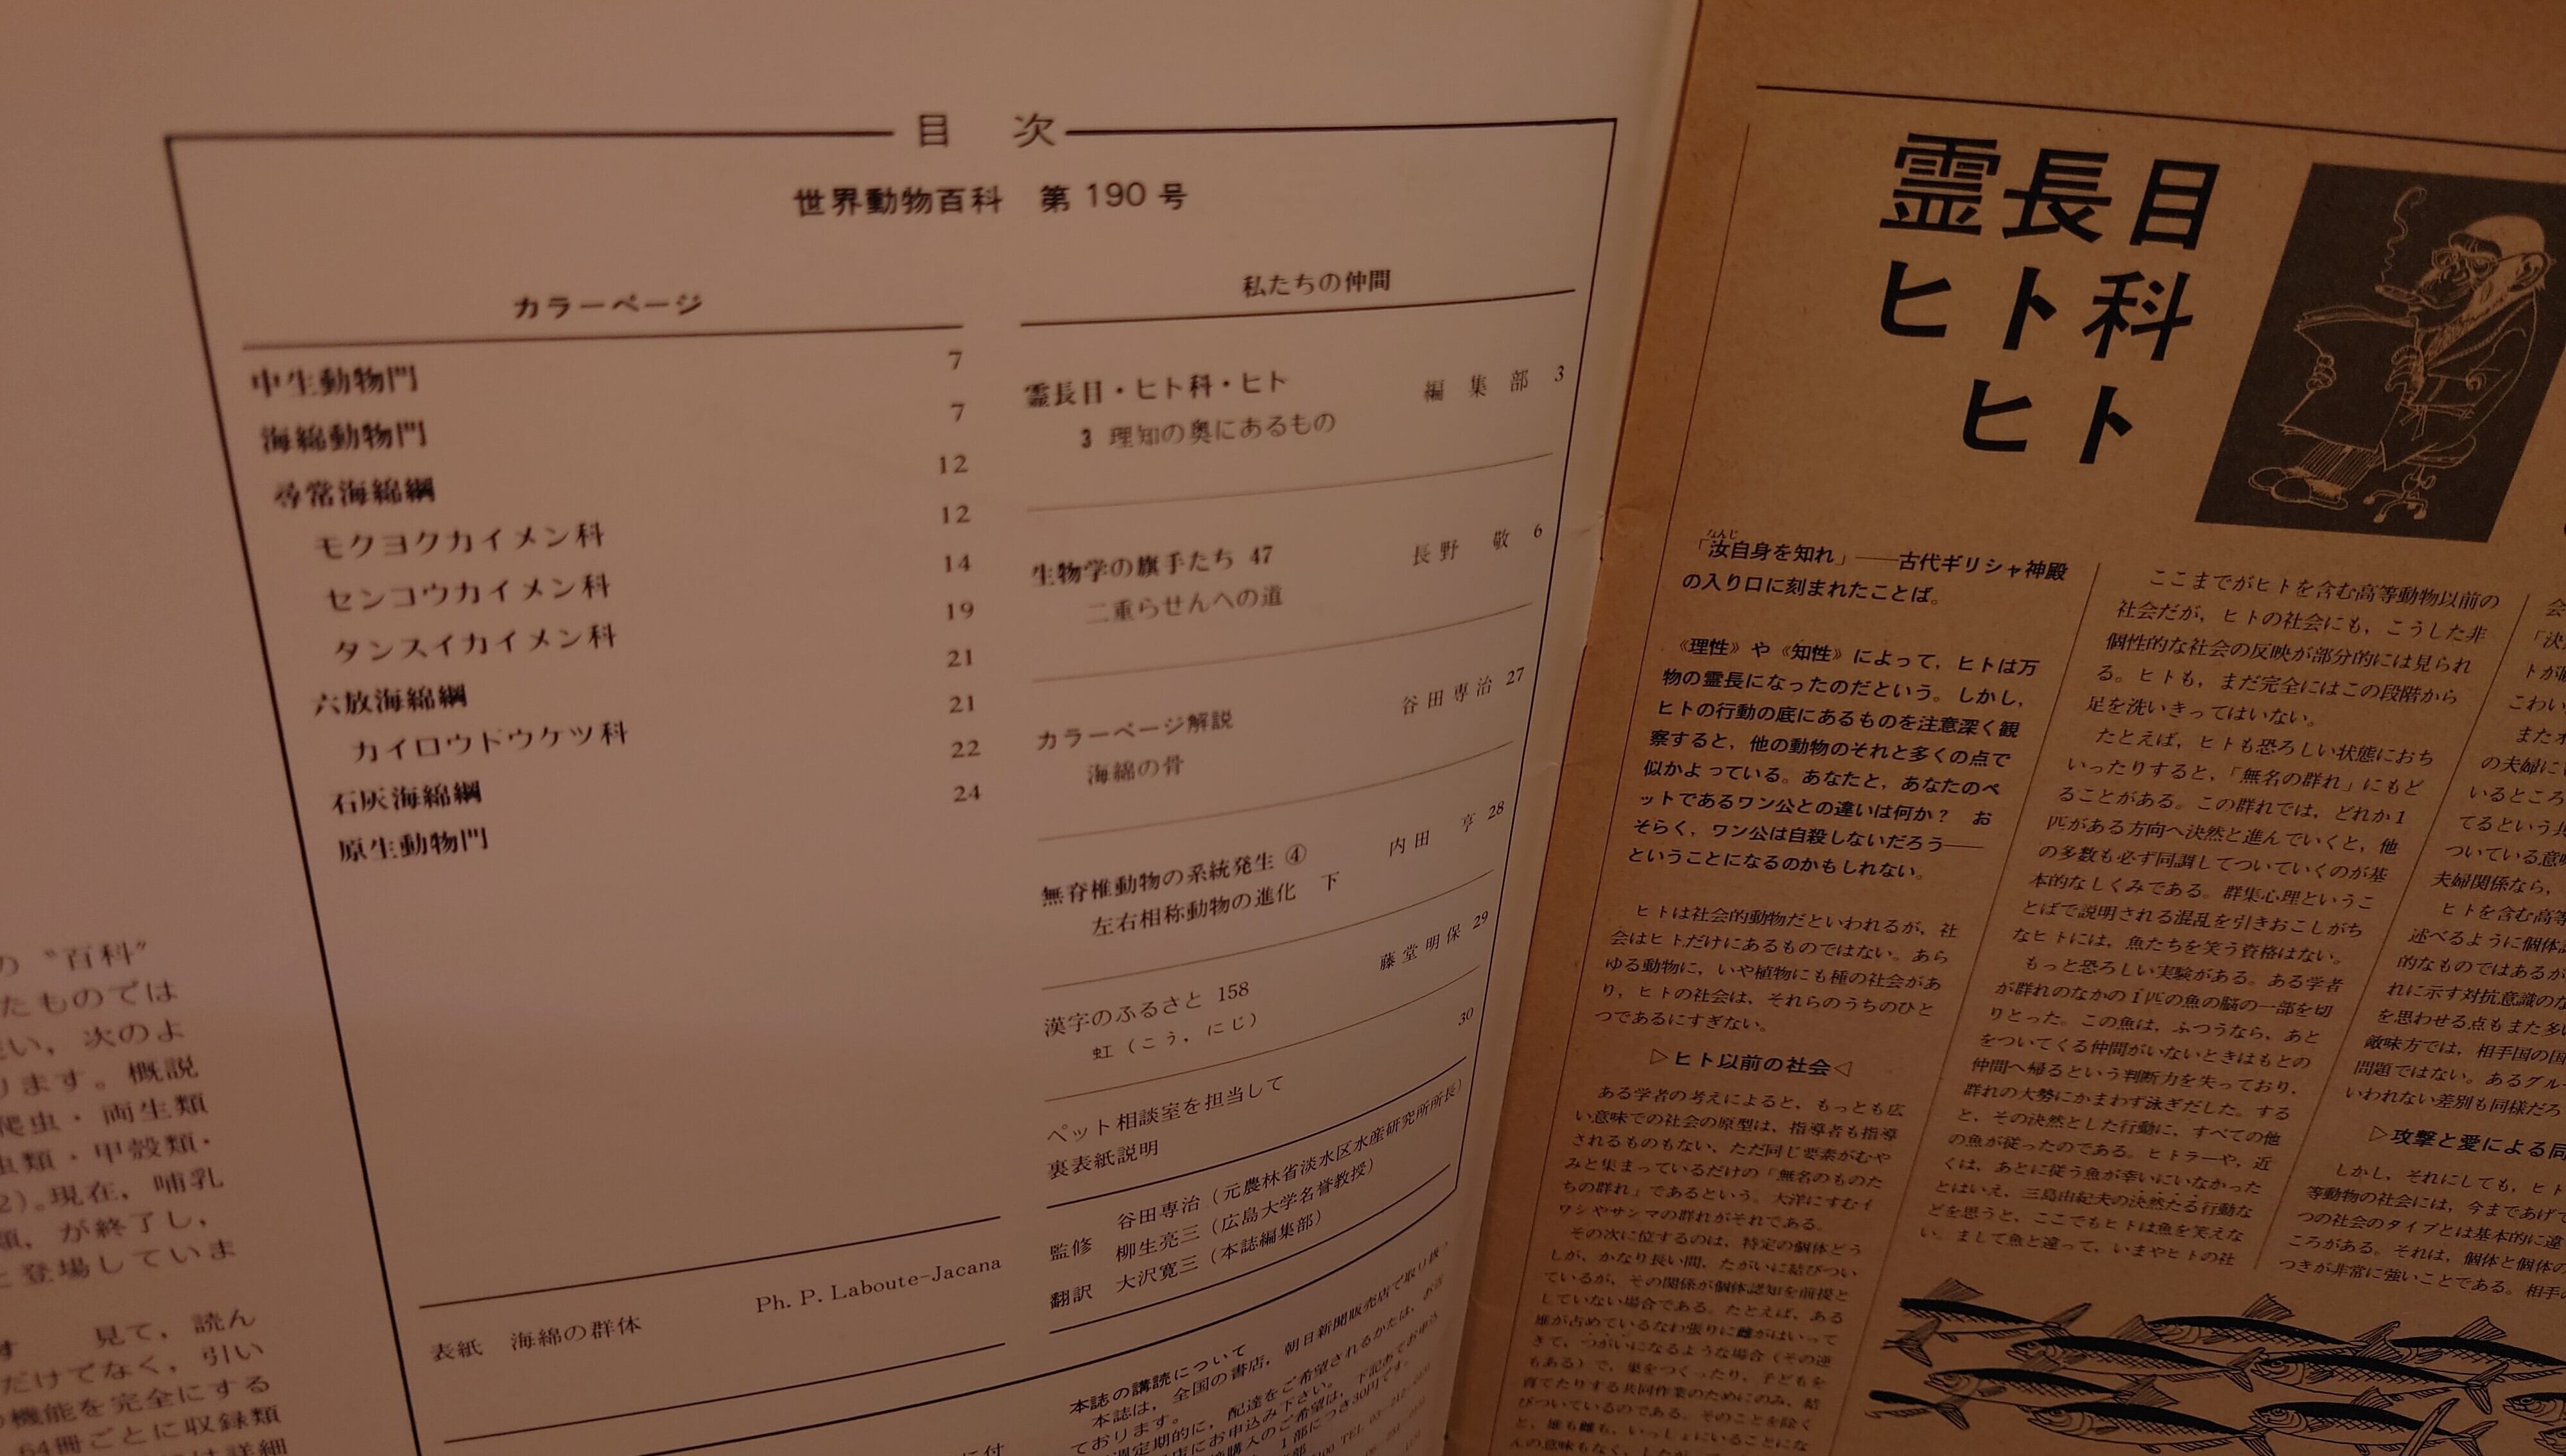 目次
世界動物百科 第190号
カラーページ
中生動物門 7
海綿動物門 7
尋常海綿綱 12
モクヨクカイメン科 12
センコウカイメン科 14
タンスイカイメン科 19
六放海綿綱 21
カイロウドウケツ科 21
石灰海綿綱 22
原生動物門 24
表紙 海綿の群体 Ph. P. Laboute-Jacana
私たちの仲間
霊長目・ヒト科・ヒト 編集部 3
3 理知の奥にあるもの
生物学の旗手たち 47 長野 敬 6
二重らせんへの道
カラーページ解説 谷田専治 27
海綿の骨
無脊椎動物の系統発生 ④ 内田 亨 28
左右相称動物の進化 下
漢字のふるさと 158 藤堂明保 29
虹(こう,にじ)
ペット相談室を担当して 30
裏表紙説明
監修 谷田専治(元農林省淡水区水産研究所所長)
柳生亮三(広島大学名誉教授)
翻訳 大沢寛三(本誌編集部)
本誌の講読について
本誌は,全国の書店,朝日新聞販売店で取り扱っ
ております。
の〝百科〞
たものでは
い,次のよ
ります。概説
爬虫・両生類
虫類・甲殻類・
2)。現在,哺乳
類,が終了し,
と登場していま
す 見て,読ん
だけでなく,引い
機能を完全にする
64冊ごとに収録類
は詳細
霊長目
ヒト科
ヒト
「汝自身を知れ」――古代ギリシャ神殿
なんじ
の入り口に刻まれたことば。
《理性》や《知性》によって,ヒトは万
物の霊長になったのだという。しかし,
ヒトの行動の底にあるものを注意深く観
察すると,他の動物のそれと多くの点で
似かよっている。あなたと,あなたのペ
ットであるワン公との違いは何か? お
そらく,ワン公は自殺しないだろう――
ということになるのかもしれない。
ヒトは社会的動物だといわれるが,社
会はヒトだけにあるものではない。あら
ゆる動物に,いや植物にも種の社会があ
り,ヒトの社会は,それらのうちのひと
つであるにすぎない。
▷ヒト以前の社会◁
ある学者の考えによると,もっとも広
い意味での社会の原型は,指導者も指導
されるものもない,ただ同じ要素がむや
みと集まっているだけの「無名のものた
ちの群れ」であるという。大洋にすむイ
ワシやサンマの群れがそれである。
その次に位するのは,特定の個体どう
しが,かなり長い間,たがいに結びつい
ているが,その関係が個体認知を前提と
していない場合である。たとえば,ある
雄が占めているなわ張りに雌がはいって
きて,つがいになるような場合(その逆
もある)で,巣をつくったり,子どもを
育てたりする共同作業のためにのみ,結
びついているのである。そのことを除く
と,雄も雌も,いっしょにいることにな
ここまでがヒトを含む高等動物以前の
社会だが,ヒトの社会にも,こうした非
個性的な社会の反映が部分的には見られ
る。ヒトも,まだ完全にはこの段階から
足を洗いきってはいない。
たとえば,ヒトも恐ろしい状態におち
いったりすると,「無名の群れ」にもど
ることがある。この群れでは,どれか1
匹がある方向へ決然と進んでいくと,他
の多数も必ず同調してついていくのが基
本的なしくみである。群集心理というこ
とばで説明される混乱を引きおこしがち
なヒトには,魚たちを笑う資格はない。
もっと恐ろしい実験がある。ある学者
が群れのなかの1匹の魚の脳の一部を切
りとった。この魚は,ふつうなら,あと
をついてくる仲間がいないときはもとの
仲間へ帰るという判断力を失っており,
群れの大勢にかまわず泳ぎだした。する
と,その決然とした行動に,すべての他
の魚が従ったのである。ヒトラーや,近
くは,あとに従う魚が幸いにいなかった
とはいえ,三島由紀夫の決然たる行動な
どを思うと,ここでもヒトは魚を笑えな
い。まして魚と違って,いまやヒトの社
会
「決
トが
こわい
また
の夫婦に
いるところ
てるという
ついている意
夫婦関係なら,
ヒトを含む高
述べるように個体
的なものではあるが
れに示す対抗意識の
を思わせる点もまた多
敵味方では,相手国の
問題ではない。あるグル
いわれない差別も同様だろ
▷攻撃と愛による同
しかし,それにしても,ヒト
等動物の社会には,今まであげて
つの社会のタイプとは基本的に違
ころがある。それは,個体と個体の
つきが非常に強いことである。相手の